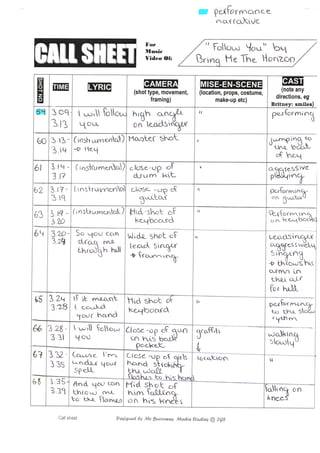 performance
narrative
CALL SHEET
For
Music
Video Of:
"Follow You" by
Bring Me The Horizon
TIME
LYRIC
CAMERA
(shot type, movement,
framing)
MISE-EN-SCENE
(location, props, costume,
make-up etc)
CAST
(note any
directions, eg
Britney: smiles)
59
3.09-
3.13
I will follow
you
high angle
on leadsinger
"
performing
60
3.13-
3.14
(instrumental)
→ Hey
Master shot
"
jumping to
the beat
of hey
61
3.14-
3.17
(instrumental)
close-up of
drum kit
"
aggressive
playing
62
3.17-
3.19
(instrumental)
close-up of
guitar
"
performing
on guitar
63
3.19-
3.20
(instrumental)
Mid-shot of
keyboard
"
Performing
on keyboard
64
3.20-
3.24
So you can
drag me
through hell
Wide shot of
lead singer
→ framing
"
Leadsinger
aggressively
singing
→ throws his
arms in
the air
for hell
65
3.24
3.28
If it meant
I could
your hand
Mid shot of
keyboard
"
performing
to the slow
rythm
66
3.28-
3.31
I will follow
you
Close-up of gun
on his back
pocket
graffiti
walking
slowly
67
3.32-
3.35
Cause I'm
under your
spell
Close-up of girls
hand
the wall
flashes to his hand
location
"
68
3.35-
3.39
And you can
throw me
to the flames
Mid shot of
him falling
on his knees
"
falling on
knees
Call sheet
Designed by Ms Barraway Media Studies @ JGB